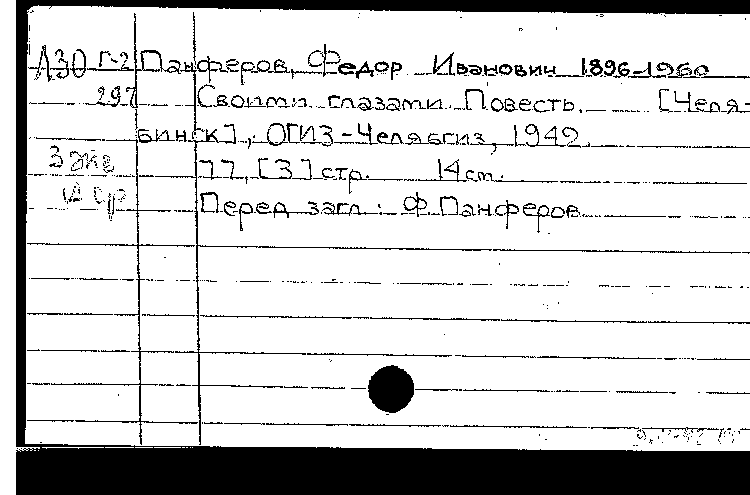 А30 Г-2 Панферов, Федор Иванович 1896-1960
297 Своими глазами. Повесть. [Челя-
бинск], ОГИЗ-Челябгиз, 1942.
3 экз 77, [3] стр. 14 см.
Перед загл.: Ф. Панферов